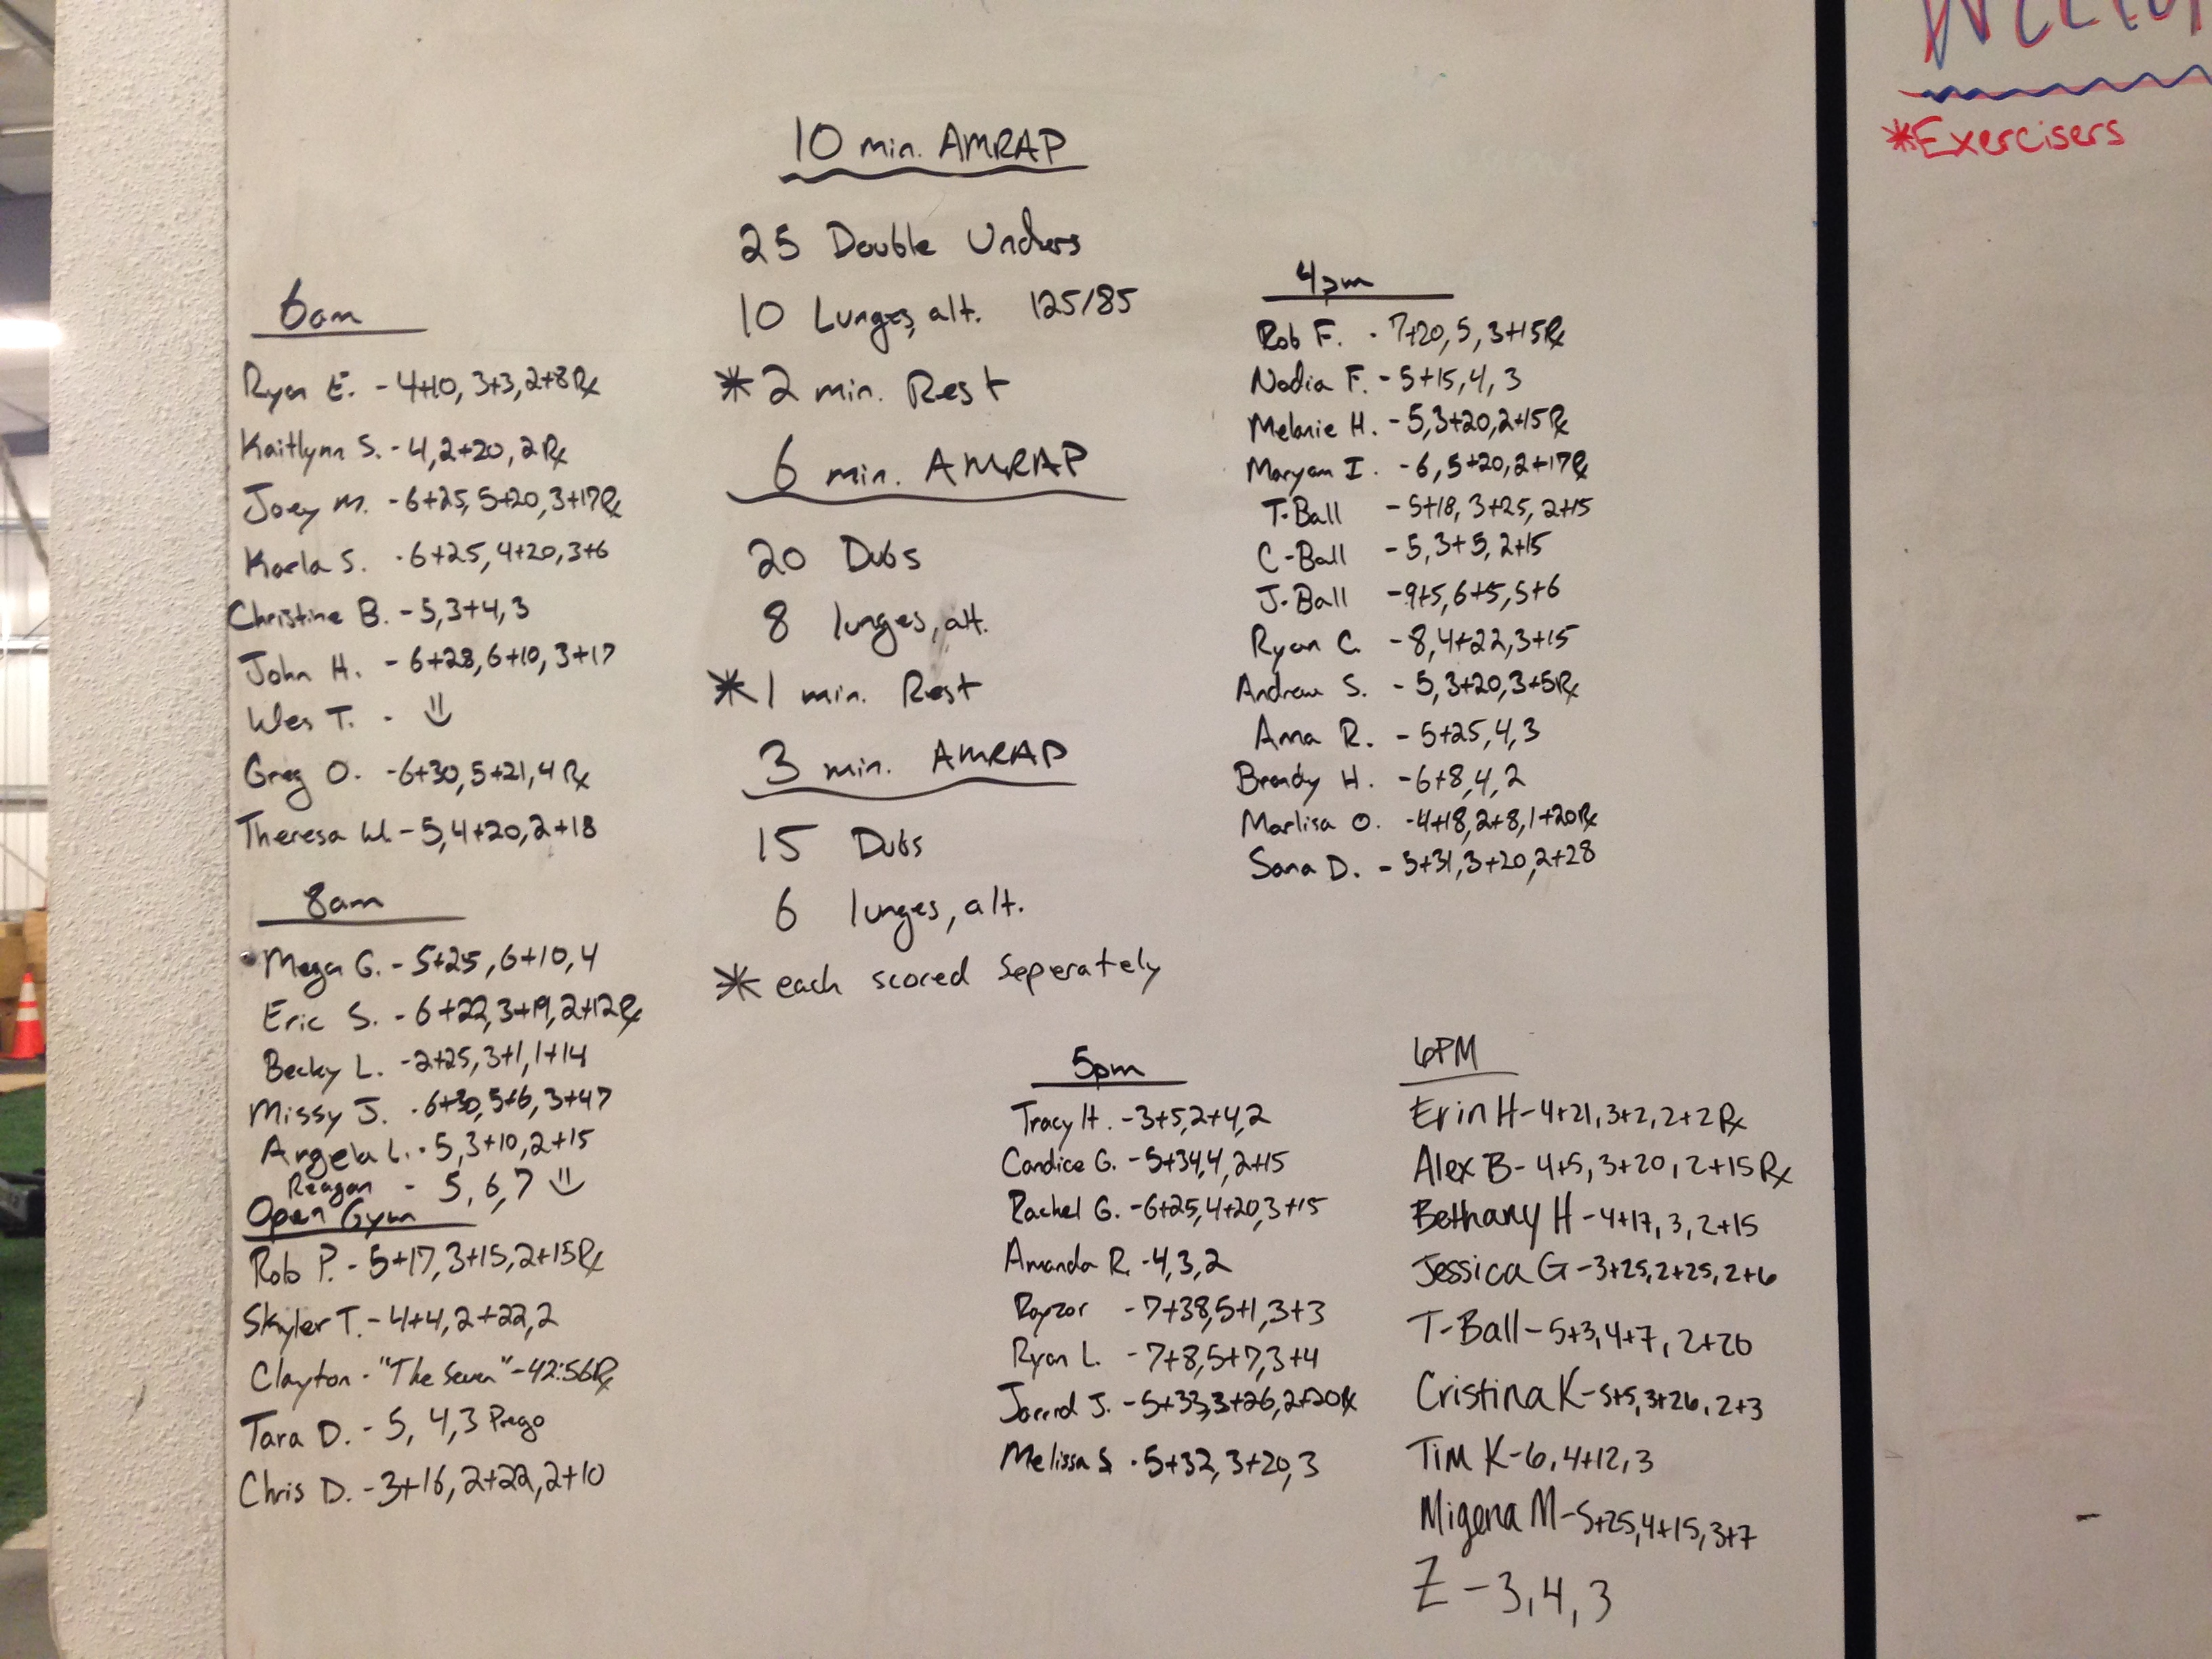 10 min. AMRAP
25 Double Unders
10 Lunges, alt. 125/85
*2 min. Rest
6 min. AMRAP
20 Dubs
8 lunges, alt.
*1 min. Rest
3 min. AMRAP
15 Dubs
6 lunges, alt.
* each scored seperately
6am
Ryan E. - 4+10, 3+3, 2+8 Rx
Kaitlynn S. - 4, 2+20, 2 Rx
Joey M. - 6+25, 5+20, 3+17 Rx
Karla S. - 6+25, 4+20, 3+6
Christine B. - 5, 3+4, 3
John H. - 6+28, 6+10, 3+17
Wes T. -
Greg O. - 6+30, 5+21, 4 Rx
Theresa W - 5, 4+20, 2+18
8am
Megan G. - 5+25, 6+10, 4
Eric S. - 6+22, 3+19, 2+12 Rx
Becky L. - 2+25, 3+1, 1+14
Missy J. - 6+30, 5+6, 3+47
Angela L. - 5, 3+10, 2+15
Reagan - 5, 6, 7
Open Gym
Rob P. - 5+17, 3+15, 2+15 Rx
Skyler T. - 4+4, 2+22, 2
Clayton - "The Seven" - 42:56 Rx
Tara D. - 5, 4, 3 Prego
Chris D. - 3+16, 2+22, 2+10
4pm
Rob F. - 7+20, 5, 3+15 Rx
Nadia F. - 5+15, 4, 3
Melanie H. - 5, 3+20, 2+15 Rx
Maryam I. - 6, 5+20, 2+17 Rx
T-Ball - 5+18, 3+25, 2+15
C-Ball - 5, 3+5, 2+15
J-Ball - 9+5, 6+5, 5+6
Ryan C. - 8, 4+22, 3+15
Andrew S. - 5, 3+20, 3+5 Rx
Anna R. - 5+25, 4, 3
Brandy H. - 6+8, 4, 2
Marlisa O. - 4+18, 2+8, 1+20 Rx
Sana D. - 5+31, 3+20, 2+28
5pm
Tracy H. - 3+5, 2+4, 2
Candice G. - 5+34, 4, 2+15
Rachel G. - 6+25, 4+20, 3+15
Amanda R. - 4, 3, 2
Rayzor - 7+38, 5+1, 3+3
Ryan L. - 7+8, 5+7, 3+4
Jarrod J. - 5+33, 3+26, 2+20 Rx
Melissa S. - 5+32, 3+20, 3
6PM
Erin H - 4+21, 3+2, 2+2 Rx
Alex B - 4+5, 3+20, 2+15 Rx
Bethany H - 4+17, 3, 2+15
Jessica G - 3+25, 2+25, 2+6
T-Ball - 5+3, 4+7, 2+20
Cristina K - 5+5, 3+26, 2+3
Tim K - 6, 4+12, 3
Migena M - 5+25, 4+15, 3+7
Z - 3, 4, 3
*Exercisers